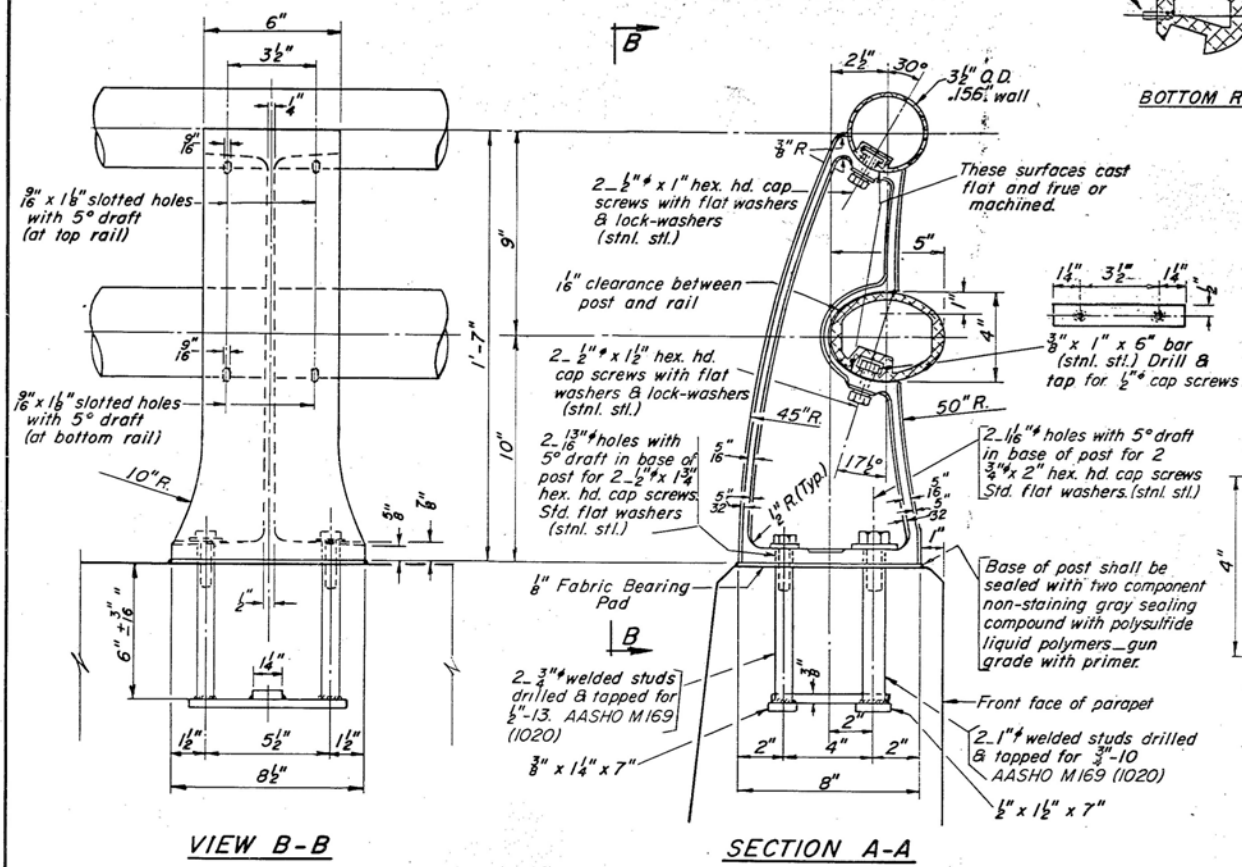 6"
3 1/2"
1/4"
9/16"
9/16" x 1 1/8" slotted holes
with 5° draft
(at top rail)
9/16"
9/16" x 1 1/8" slotted holes
with 5° draft
(at bottom rail)
10" R.
5/8"
7/8"
1/2"
6" ± 3/16"
1 1/4"
1 1/2"
5 1/2"
1 1/2"
8 1/2"
VIEW B-B
1'-7"
9"
10"
B
B
2 1/2"
30°
3 1/2" O.D.
.156" wall
BOTTOM R
3/8" R
2_1/2"ø x 1" hex. hd. cap
screws with flat washers
& lock-washers
(stnl. stl.)
These surfaces cast
flat and true or
machined.
5"
1/16" clearance between
post and rail
1"
4"
1 1/4"
3 1/2"
1 1/4"
1/2"
3/8" x 1" x 6" bar
(stnl. stl.) Drill &
tap for 1/2"ø cap screws
2_1/2"ø x 1 1/2" hex. hd.
cap screws with flat
washers & lock-washers
(stnl. stl.)
45" R.
50" R.
17 1/2°
2_13/16"ø holes with
5° draft in base of
post for 2_1/2"ø x 1 3/4"
hex. hd. cap screws.
Std. flat washers
(stnl. stl.)
5/16"
5/32"
1/2" R.(Typ.)
5/16"
5/32"
2_1 1/16"ø holes with 5° draft
in base of post for 2
3/4"ø x 2" hex. hd. cap screws
Std. flat washers. (stnl. stl.)
1"
1/8" Fabric Bearing
Pad
Base of post shall be
sealed with two component
non-staining gray sealing
compound with polysulfide
liquid polymers_gun
grade with primer.
4"
2_3/4"ø welded studs
drilled & tapped for
1/2"-13. AASHO M169
(1020)
3/8"
Front face of parapet
3/8" x 1 1/4" x 7"
2"
2"
4"
2"
8"
2_1"ø welded studs drilled
& tapped for 3/4"-10
AASHO M169 (1020)
1/2" x 1 1/2" x 7"
SECTION A-A